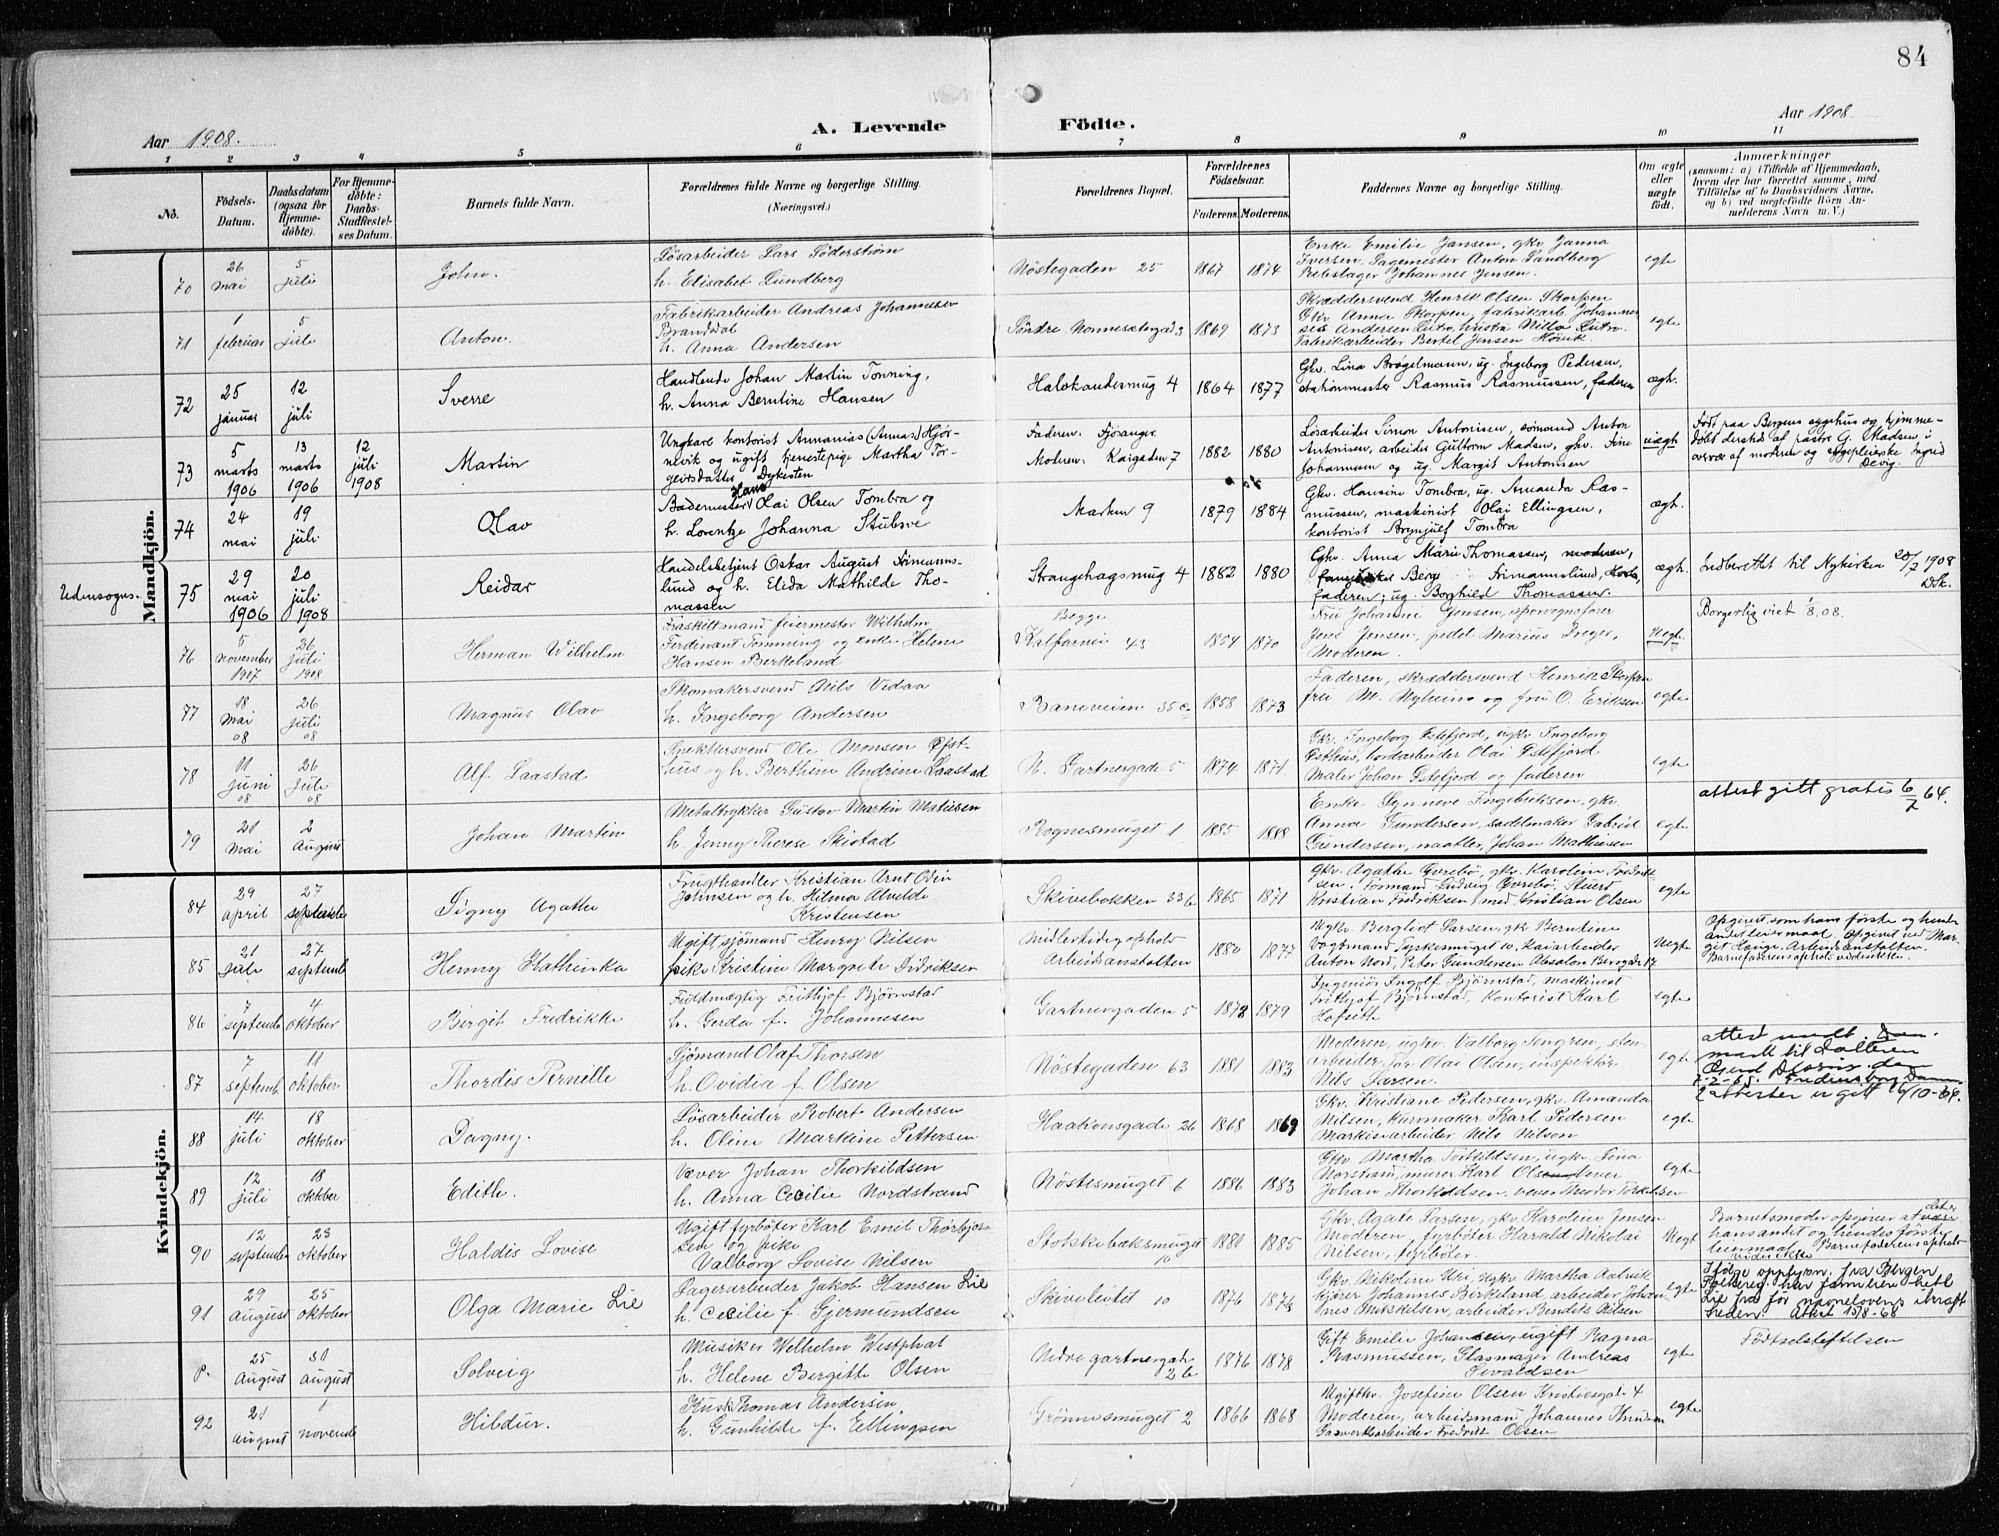 84
Aar 1908.
A. Levende Födte.
Aar 1908
1 2 3 4 5 6 7 8 9 10 11
No.
Födsels-Datum.
Daabsdatum (ogsaa for Hjemme-döbte).
For Hjemme-döbte: Daabs-Stadfæstel-ses Datum.
Barnets fulde Navn.
Forældrenes fulde Navne og borgerlige Stilling.
(Næringsvei.)
Forældrenes Bopæl.
Forældrenes Födselsaar.
Faderens. Moderens.
Faddernes Navne og borgerlige Stilling.
Om ægte eller uægte födt.
Anmærkninger
(saasom: a) i Tilfælde af Hjemmedaab,
hvem der har forrettet samme, med
Tilföielse af to Daabsvidners Navne,
og b) ved uægtefödte Börn An-
melderens Navn m. V.)
Mandkjön.
70 26 mai 5 juli John. Løsarbeider Lars Söderström
h. Elisabet Lundberg
Nöstegaden 25 1867 1874
Enke Emilie Jansen, gkv Janna
Iversen, Sagemester Anton Sandberg
Rebslager Johannes Jensen.
egte
71 1 februar 5 juli Anton.
Fabrikarbeider Andreas Johannesen
Brandal
h. Anna Andersen
Söndre Nonnesætergad 3 1869 1873
Skræddersvend Henrik Olsen Skorpen
Gkv Anna Skorpen, fabrikarb. Johannes
Fabrikarbeider Bertel Jensen Hövik
egte
72 25 januar 12 juli Sverre
Handlende Johan Martin Tonning,
h. Anna Berntine Hansen
Halvkandesmug 4 1864 1877
Ghv. Lina Brøgelmann, ug. Ingeborg Pedersen,
stationsmester Rasmus Rasmussen, faderen
ægt.
73 5 marts 1906 13 marts 1906 12 juli 1908 Martin
Ungkarl kontorist Annanias (Annas) Hjör-
nevik og ugift tjenestepige Martha Tor-
geirsdatter Dykesten
Faderen: Fjösanger
Moderen: Kaigaden 7 1882 1880
Løsarbeider Simon Antonisen, sømand Anton
Antonisen, arbeider Guttorm Madsen, ghv. Sine
Johannesen og ug. Margit Antonisen
uægt.
Født paa Bergens sygehus og hjemme-
døbt dersteds af pastor G. Madsen, i
overvær af moderen og sygepleierske Ingrid
Devig.
74 24 mai 19 juli Olav
Bademester Hans Olai Olsen Tombra og
h. Lorentze Johanna Stubsve
Marken 9 1879 1884
Gkv. Hansine Tombra, ug. Amanda Ras-
mussen, maskinist Olai Ellingsen,
kontorist Brynjulf Tombra
ægt.
Udensogns.
75 29 mai 1906 20 juli 1908 Reidar
Handelsbetjent Oskar August Frimanns-
lund og h. Elida Mathilde Tho-
massen
Strangehagsmug 4 1882 1880
Gghv. Anna Marie Thomassen, moderen,
Frimannslund,
faderen, ug. Borghild Thomassen.
ægt.
Indberettet til Nykirken 20/7 1908
76 5 november 1907 26 juli 1908 Herman Wilhelm
Fraskiltmand feiermester Wilhelm
Ferdinant Tonning og enke Helene
Hansen Berkeland
Begge
Kalfarvei 43 1854 1870
Fru Johanne Jensen, sporvognsfører
Jens Jensen, pedel Marius Greger,
Moderen.
Uegt.
Borgerlig viet 8.08.
77 18 mai 08 26 juli 08 Magnus Olav
Skomakersvend Nils Vidaa
h. Ingeborg Andersen
Baneveien 35c 1858 1873
Faderen, skræddersvend Henrik Skorpen
fru M. Myhring og fru O. Eriksen
egte
78 11 juni 08 26 juli 08 Alf Laastad
Snekkersvend Ole Monsen Øfst-
hus og h. Berthine Andrine Laastad
N. Gartnergade 5 1874 1871
Gkv. Ingeborg Estefjord, ugkv Ingeborg
Østhus, jordarbeider Olai Estefjord
Maler Johan Estefjord og faderen
egte
79 21 mai 2 August Johan Martin
Metaltrykker Gustav Martin Matiesen
h. Jenny Therese Skistad
Rognesmuget 1 1885 1888
Enke Synneve Ingebriktsen, gkv.
Anna Gundersen, sadelmaker Gabriel
Gundersen, maatler, Johan Mathiesen
egte
attest gitt gratis 6/7 64.
Kvindekjön.
84 29 april 27 september Signy Agathe
Frugthandler Kristian Arnt Odin
Johnsen og h. Hilma Alvilde
Kristensen
Skivebokken 33b 1865 1871
Gkv. Agathe Øvrebö, gkv. Karoline Fredrik-
sen. Formand Ludvig Øvrebö. Stuert
Kristian Fredriksen, med Kristian Olsen
egte
85 21 juli 27 septemb Henny Kathinka
Ugift sjömand Henry Nilsen
pike Kristine Margrete Didriksen
Midlertidig ophold
Arbeidsanstalten 1880 1877
Ugkv. Bergliot Larsen, gkv Berntine
Vogtmand, Lykkesmuget 10, kaiarbeider
Anton Nord, Peter Gundersen Absalon Bersgade 17
Uegt
Opgivet som hans første og hendes
andet leiermaal. Opgivet ved Mar-
git Hauge. Arbeidsanstalten.
Barnefaderens ophold vides ikke.
86 7 septemb 4 oktober Birgit Fredrikke
Fuldmægtig Frithjof Björnstad
h. Gerda f. Johannesen
Gartnergaden 5 1878 1879
Ingeniör Ingolf Björnstad, maskinist
Frithjof Björnstad, kontorist Karl
Hofseth
egte
87 7 septemb. 11 oktober Thordis Pernille
Sjömand Olaf Thorsen
h. Ovidia f. Olsen
Nöstegaden 63 1881 1883
Moderen, ugkv. Valborg Tengren, sten-
arbeider, Tor Olai Olsen, inspektör
Nils Larsen.
egte
attest
mark til Datteren
7-2-65. Fredensborg Danm
2 attester utgitt 16/10-64.
88 14 juli 18 oktober Dagny.
Løsarbeider Robert Andersen
h. Oline Markine Pettersen
Haakonsgade 26 1868 1869
Gkv. Kristiane Pedersen, gkv. Amanda
Nilsen, kuromaker Karl Pedersen
Maskinarbeider Nils Nilsen
egte
89 12 juli 18 oktober Edith.
Væver Johan Thorkildsen
h. Anna Cecilie Nordstrand
Nöstesmuget 6 1886 1883
Gkv. Martha Torkildsen, ugkv. Lina
Norstrand, murer Karl Olsen
Johan Thorkildsen. væver Theodor Torkildsen
egte
90 12 september 23 oktober Haldis Lovise
Ugift fyrböter Karl Emil Thorbjorn
sen og pike
Valborg Lovise Nilsen
Stölskebæksmuget 10 1881 1885
Gkv. Agate Larsen, gkv. Karoline Jensen
Moderen, fyrböter Harald Nikolai
Nilsen, fyrböter.
Uegt
Barnetsmoder opgiver at det er
hans andet og hendes første
leiermaal. Barnefaderens ophold
vides ikke
91 29 August 25 oktober Olga Marie Lie
Lagerarbeider Jakob Hansen Lie
h. Cecilie f. Gjermundsen
Skivelentet 10 1876 1874
Gkv. Nikoline Uri, ugkv. Martha Aalvik
kjörer Johannes Birkeland, arbeider Johan
nes Mikkelsen, arbeider Bendik Nilsen
egte
Ifölge opplysn. fra Bergen
Folkereg. har familien hett
Lie fra för navnelovens ikraft
treden. Attest 15/8-68
P. 25 August 31 August Solveig
Musiker Wilhelm Westphal
h. Helene Birgitte Olsen
Nedre gartnergade 2b 1876 1878
Gift Emilie Johansen, ugift Ragna
Rasmussen, Glasmager Andreas
Sivaldsen
egte
Födselstiftelsen
92 21 August 1 novembe Hildur.
Kusk Thomas Andersen
h. Gunhilde f. Ellingsen
Grönnesmuget 2 1866 1868
Ugiftkv. Josefine Olsen Kristiesgate 4
Moderen, arbeidsmand Johannes Knudsen
Gasverksarbeider Fredrik Olsen
egte